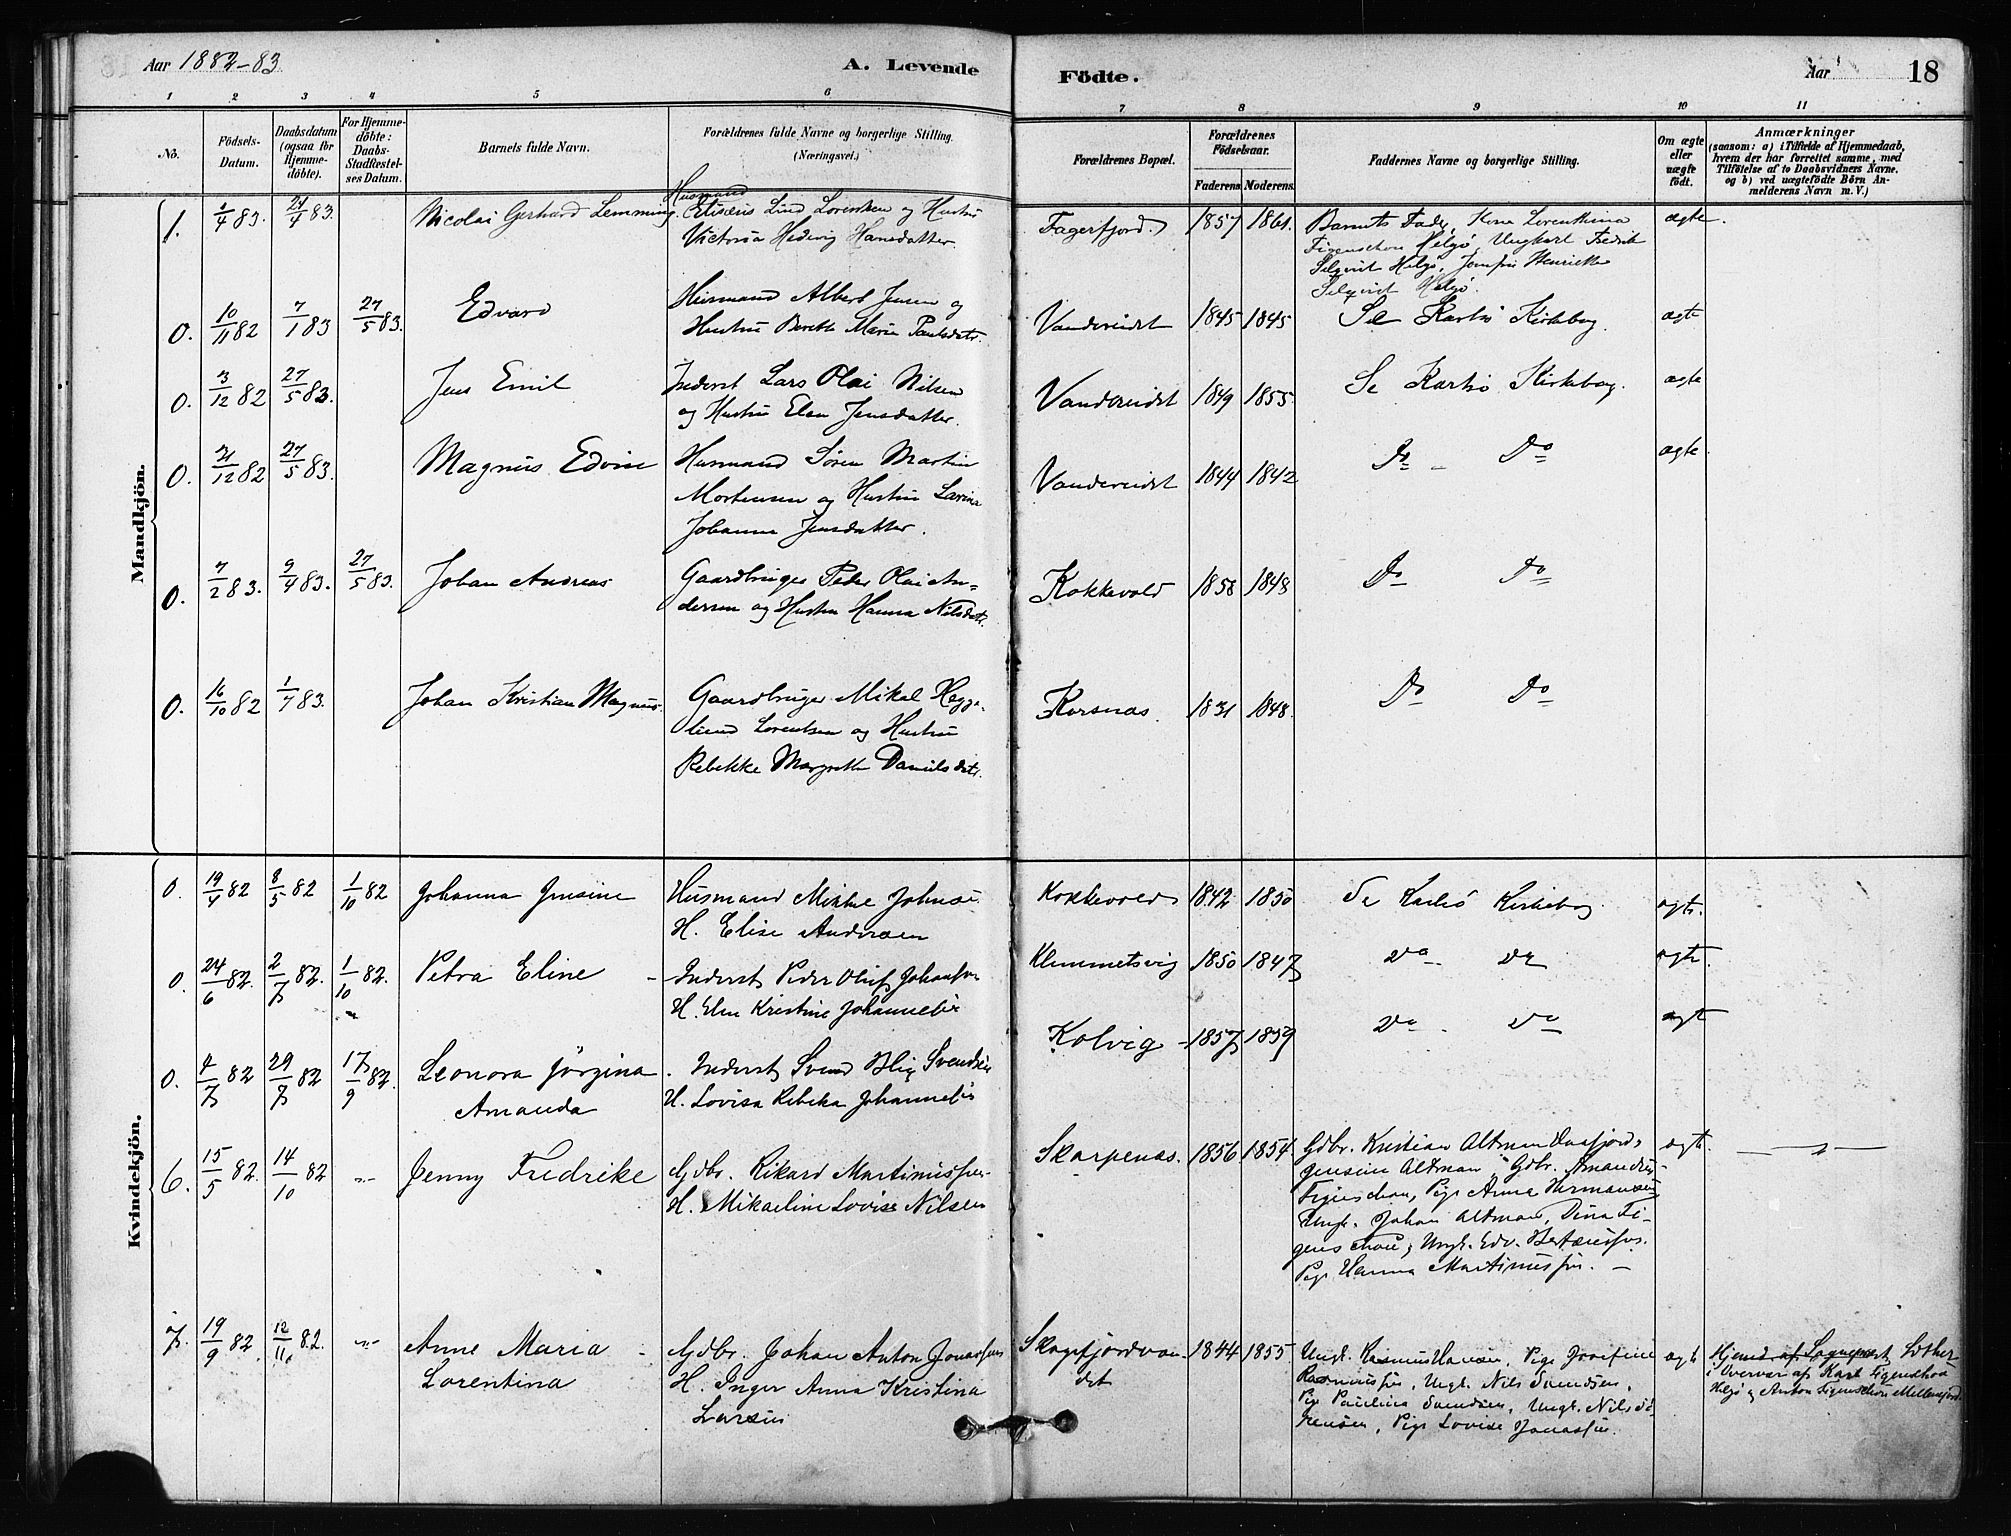 Aar 1882-83
A. Levende
Födte.
Aar
18
1 2 3 4 5 6 7 8 9 10 11
No.
Födsels-
Datum.
Daabsdatum
(ogsaa för
Hjemme-
döbte).
For Hjemme-
döbte:
Daabs-
Stadfestel-
ses Datum.
Barnets fulde Navn.
Forældrenes fulde Navne og borgerlige Stilling.
(Næringsvei.)
Forældrenes Bopæl.
Forældrenes
Födselsaar.
Faderens. Moderens.
Faddernes Navne og borgerlige Stilling.
Om ægte
eller
uægte
födt.
Anmærkninger
(saasom: a) i Tilfælde af Hjemmedaab,
hvem der har forrettet samme, med
Tilföielse af to Daabsvidners Navne.
og b) ved uægtefödte Börn An-
melderens Navn m. V.)
Mandkjön.
1. 4 83. 4 83. Nicolai Gerhard Lemming
Husmand
Elisæus Lind Lorentsen og Hustru
Victoria Hedevig Hansdatter
Fagerfjord. 1857 1861. Barnets Fader, Kone Lorenthina
Figenschou Helgø, Ungkarl Fredrik
Selqvist Helgø, Jomfru Henriette
Selqvist Helgø.
ægte.
0. 10/11 82 7/1 83 27/5 83. Edvard
Husmand Albert Jensen og
Hustru Berethe Marie Paulsdatr.
Vandereidet 1845 1845 Se Karlsø Kirkebog. ægte
0. 3/12 82 27/5 83. Jens Emil
Inderst Lars Olai Nilsen
og Hustru Elen Jensdatter.
Vandereidet 1849 1855. Se Karlsø Kirkebog. ægte
0. 21/12 82 27/5 83. Magnus Edvin
Husmand Søren Martin
Mortensen og Hustru Lavina
Johanna Jensdatter.
Vandereidet 1844 1842 Do - Do ægte.
0. 7/2 83. 9/4 83. 27/5 83. Johan Andreas
Gaardbruger Peder Olai An-
dersen og Hustru Hanna Nilsdatr.
Kokkevold 1858 1848 Do Do
0. 16/10 82 1/7 83. Johan Kristian Magnus.
Gaardbruger Mikal Hegge-
lund Lorentsen og Hustru
Rebekke Margrethe Danielsdatr.
Korsnæs. 1831 1848. Do Do
Kvindekjön.
0. 19/4 82 8/5 82 1/10 82 Johanna Jensine
Husmand Mikkel Johnsen
H. Elise Andersen
Kokkevold 1842 1850 Se Karlsø Kirkebog ægte.
0. 24/6 82. 2/7 82. 1/10 82. Petra Eline -
Inderst Peder Oluf Johansen
H. Elen Kristine Johannesen
Klemmetsvig 1850 1847 Do Do ægte.
0. 4/7 82 29/7 82 17/9 82. Leonora Jörgina
Amanda
Inderst Svend Blix Svendsen
H. Lovisa Rebeka Johannesen
Kolvig - 1857 1859 Do - Do ægt
6. 15/5 82. 14/10 82 -"- Jenny Fredrike
Gdbr. Rikard Martinussen -
H. Mikaeline Lovise Nilsen
Skarpenæs. 1856 1854. Gdbr. Kristian Altman Daafjord,
Jensine Altman, Gdbr. Amandus
Figenschou, Pige Anna Hermansen,
Ungk. Johan Altman, Dina Fi-
genschou, Ungk. Edv. Bertæussen.
Pige Hanna Martinussen. -
ægte.
7. 19/9 82. 12/11 82. -"- Anne Maria -
Lorentina
Gdbr. Johan Anton Jonassen
H. Inger Anna Kristina
Larsen
Skogsfjordvan-
det
1844 1855. Ungk. Rasmus Hansen, Pige Josefine
Rasmussen, Ungk. Nils Svendsen,
Pige Paulina Svendsen, Ungk. Nils Sö-
rensen, Pige Lovise Jonassen.
ægte
Hjemd. af Sogneprest Lother
i Overvær af Karl Figenschou
Helgø og Anton Figenschou Mellemjord.